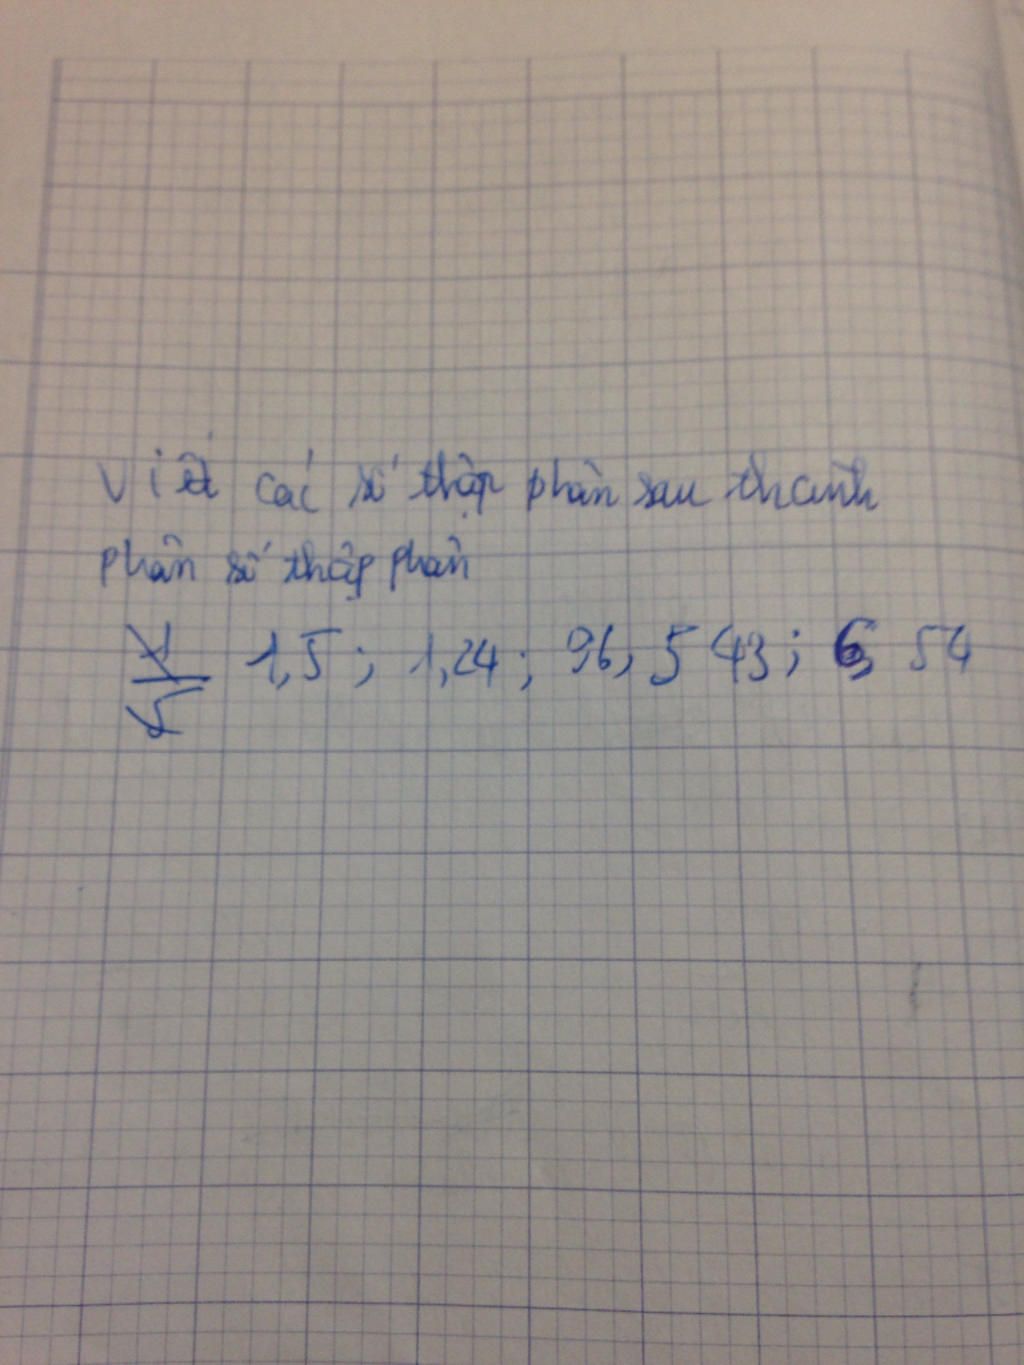 Viết các số thập phân sau thành
phân số thập phân
1,5; 1,24; 96,543; 6,54